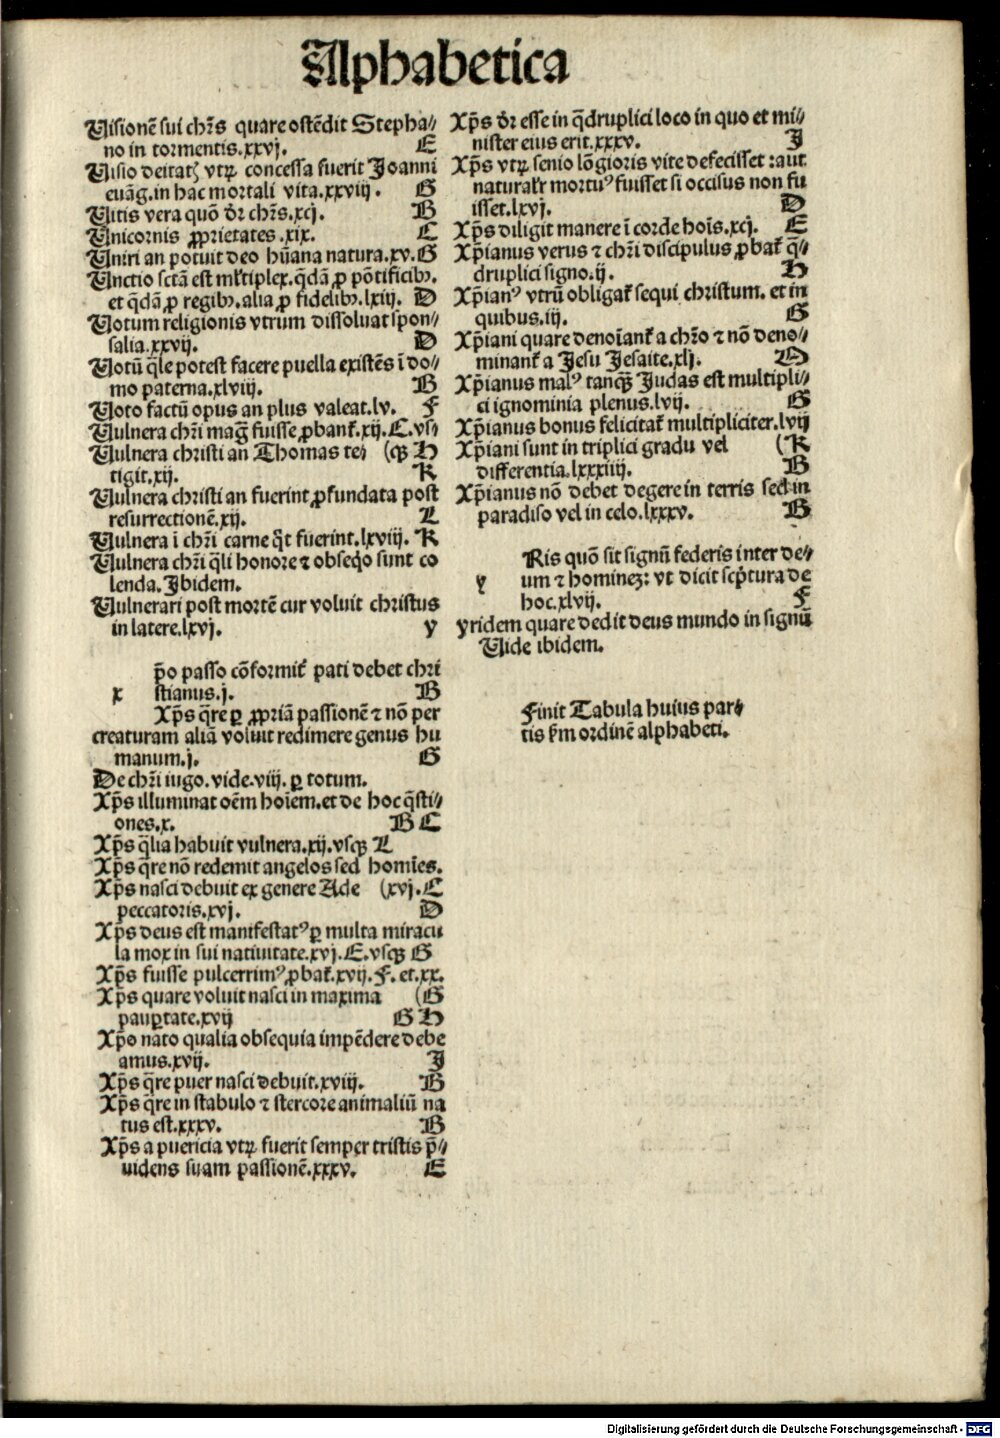 Alphabetica
Uisionē sui chr̄s quare ostēdit Stepha⸗
no in tormentis.xxvj. E
Uisio deitatꝭ vtrꝝ concessa fuerit Joanni
euāg.in hac mortali vita.xxviij. G
Uitis vera quō dr̄ chr̄s.xcj. B
Unicornis ꝓprietates.xix. C
Uniri an potuit deo hūana natura.xv. G
Unctio sctā est ml̄tiplex.qdā ꝓ pōtificibꝰ.
et qdā ꝓ regibꝰ.alia ꝓ fidelibꝰ.lxiij. D
Uotum religionis vtrum dissoluat spon⸗
salia.xxvij. D
Uotū q̄le potest facere puella existēs ī do⸗
mo paterna.xlviij. B
Uoto factū opus an plus valeat.lv. F
Uulnera chr̄i maḡ fuisse ꝓbant̄.xij.C.vs⸗
Uulnera christi an Thomas te⸗ (qꝫ H
tigit.xij. K
Uulnera christi an fuerint ꝓfundata post
resurrectionē.xij. L
Uulnera ī chr̄i carne q̄t fuerint.lxviij. K
Uulnera chr̄i q̄li honore ⁊ obseqͦo sunt co
lenda.Ibidem.
Uulnerari post mortē cur voluit christus
in latere.lxvj. y
x
p̄o passo cōformit̄ pati debet chri
stianus.j. B
Xp̄s q̄re ꝑ ꝓpriā passionē ⁊ nō per
creaturam aliā voluit redimere genus hu
manum.j. G
De chr̄i iugo.vide.viij.ꝑ totum.
Xp̄s illuminat oēm hoīem.et de hoc q̄sti⸗
ones.x. B C
Xp̄s q̄lia habuit vulnera.xij.vsqꝫ L
Xp̄s q̄re nō redemit angelos sed homīes.
Xp̄s nasci debuit ex genere Ade (xvj.C
peccatoris.xvj. D
Xp̄s deus est manifestatꝰ ꝑ multa miracu
la mox in sui natiuitate.xvj.E.vsqꝫ G
Xp̄s fuisse pulcerrimꝰ ꝓbat̄.xvij.F.et.xx.
Xp̄s quare voluit nasci in maxima (G
pauꝑtate.xvij G H
Xp̄o nato qualia obsequia impēdere debe
amus.xvij. J
Xp̄s q̄re puer nasci debuit.xviij. B
Xp̄s q̄re in stabulo ⁊ stercore animaliū na
tus est.xxxv. B
Xp̄s a puericia vtrꝝ fuerit semper tristis p̄⸗
uidens suam passionē.xxxv. E
Xp̄s dr̄ esse in q̄druplici loco in quo et mi⸗
nister eius erit.xxxv. J
Xp̄s vtrꝝ senio lōgioris vite defecisset : aut
naturalr̄ mortuꝰ fuisset si occisus non fu
isset.lxvj. D
Xp̄s diligit manere ī corde hoīs.xcj. E
Xp̄ianus verus ⁊ chr̄i discipulus ꝓbat̄ q̄⸗
druplici signo.ij. H
Xp̄ianꝰ vtrū obligat̄ sequi christum.et in
quibus.iij. G
Xp̄iani quare denoīant̄ a chr̄o ⁊ nō deno⸗
minant̄ a Jesu Jesaite.xlj. O
Xp̄ianus malꝰ tanqꝫ Judas est multipli⸗
ci ignominia plenus.lvij. G
Xp̄ianus bonus felicitat̄ multipliciter.lvij
Xp̄iani sunt in triplici gradu vel (K
differentia.lxxxiiij. B
Xp̄ianus nō debet degere in terris sed in
paradiso vel in celo.lxxxv. B
y
Ris quō sit signū federis inter de⸗
um ⁊ hominez: vt dicit scp̄tura de
hoc.xlvij. F
yridem quare dedit deus mundo in signū
Uide ibidem.
Finit Tabula huius par⸗
tis ẜm ordinē alphabeti.
Digitalisierung gefördert durch die Deutsche Forschungsgemeinschaft - DFG